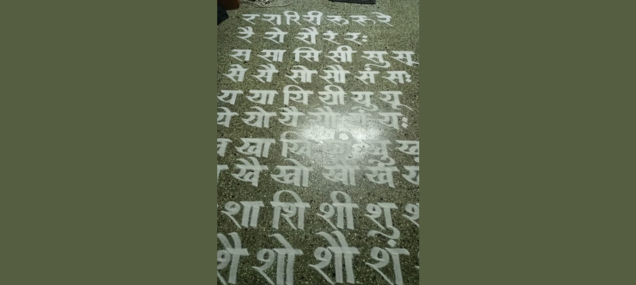 र रा रि री रु रू रे
रै रो रौ रं रः
स सा सि सी सु सू
से सै सो सौ सं सः
य या यि यी यु यू
ये यो यै यौ यं यः
ख खा खि खी खु खू ख
खै खो खौ खं
शा शि शी शु
शै शो शौ शं